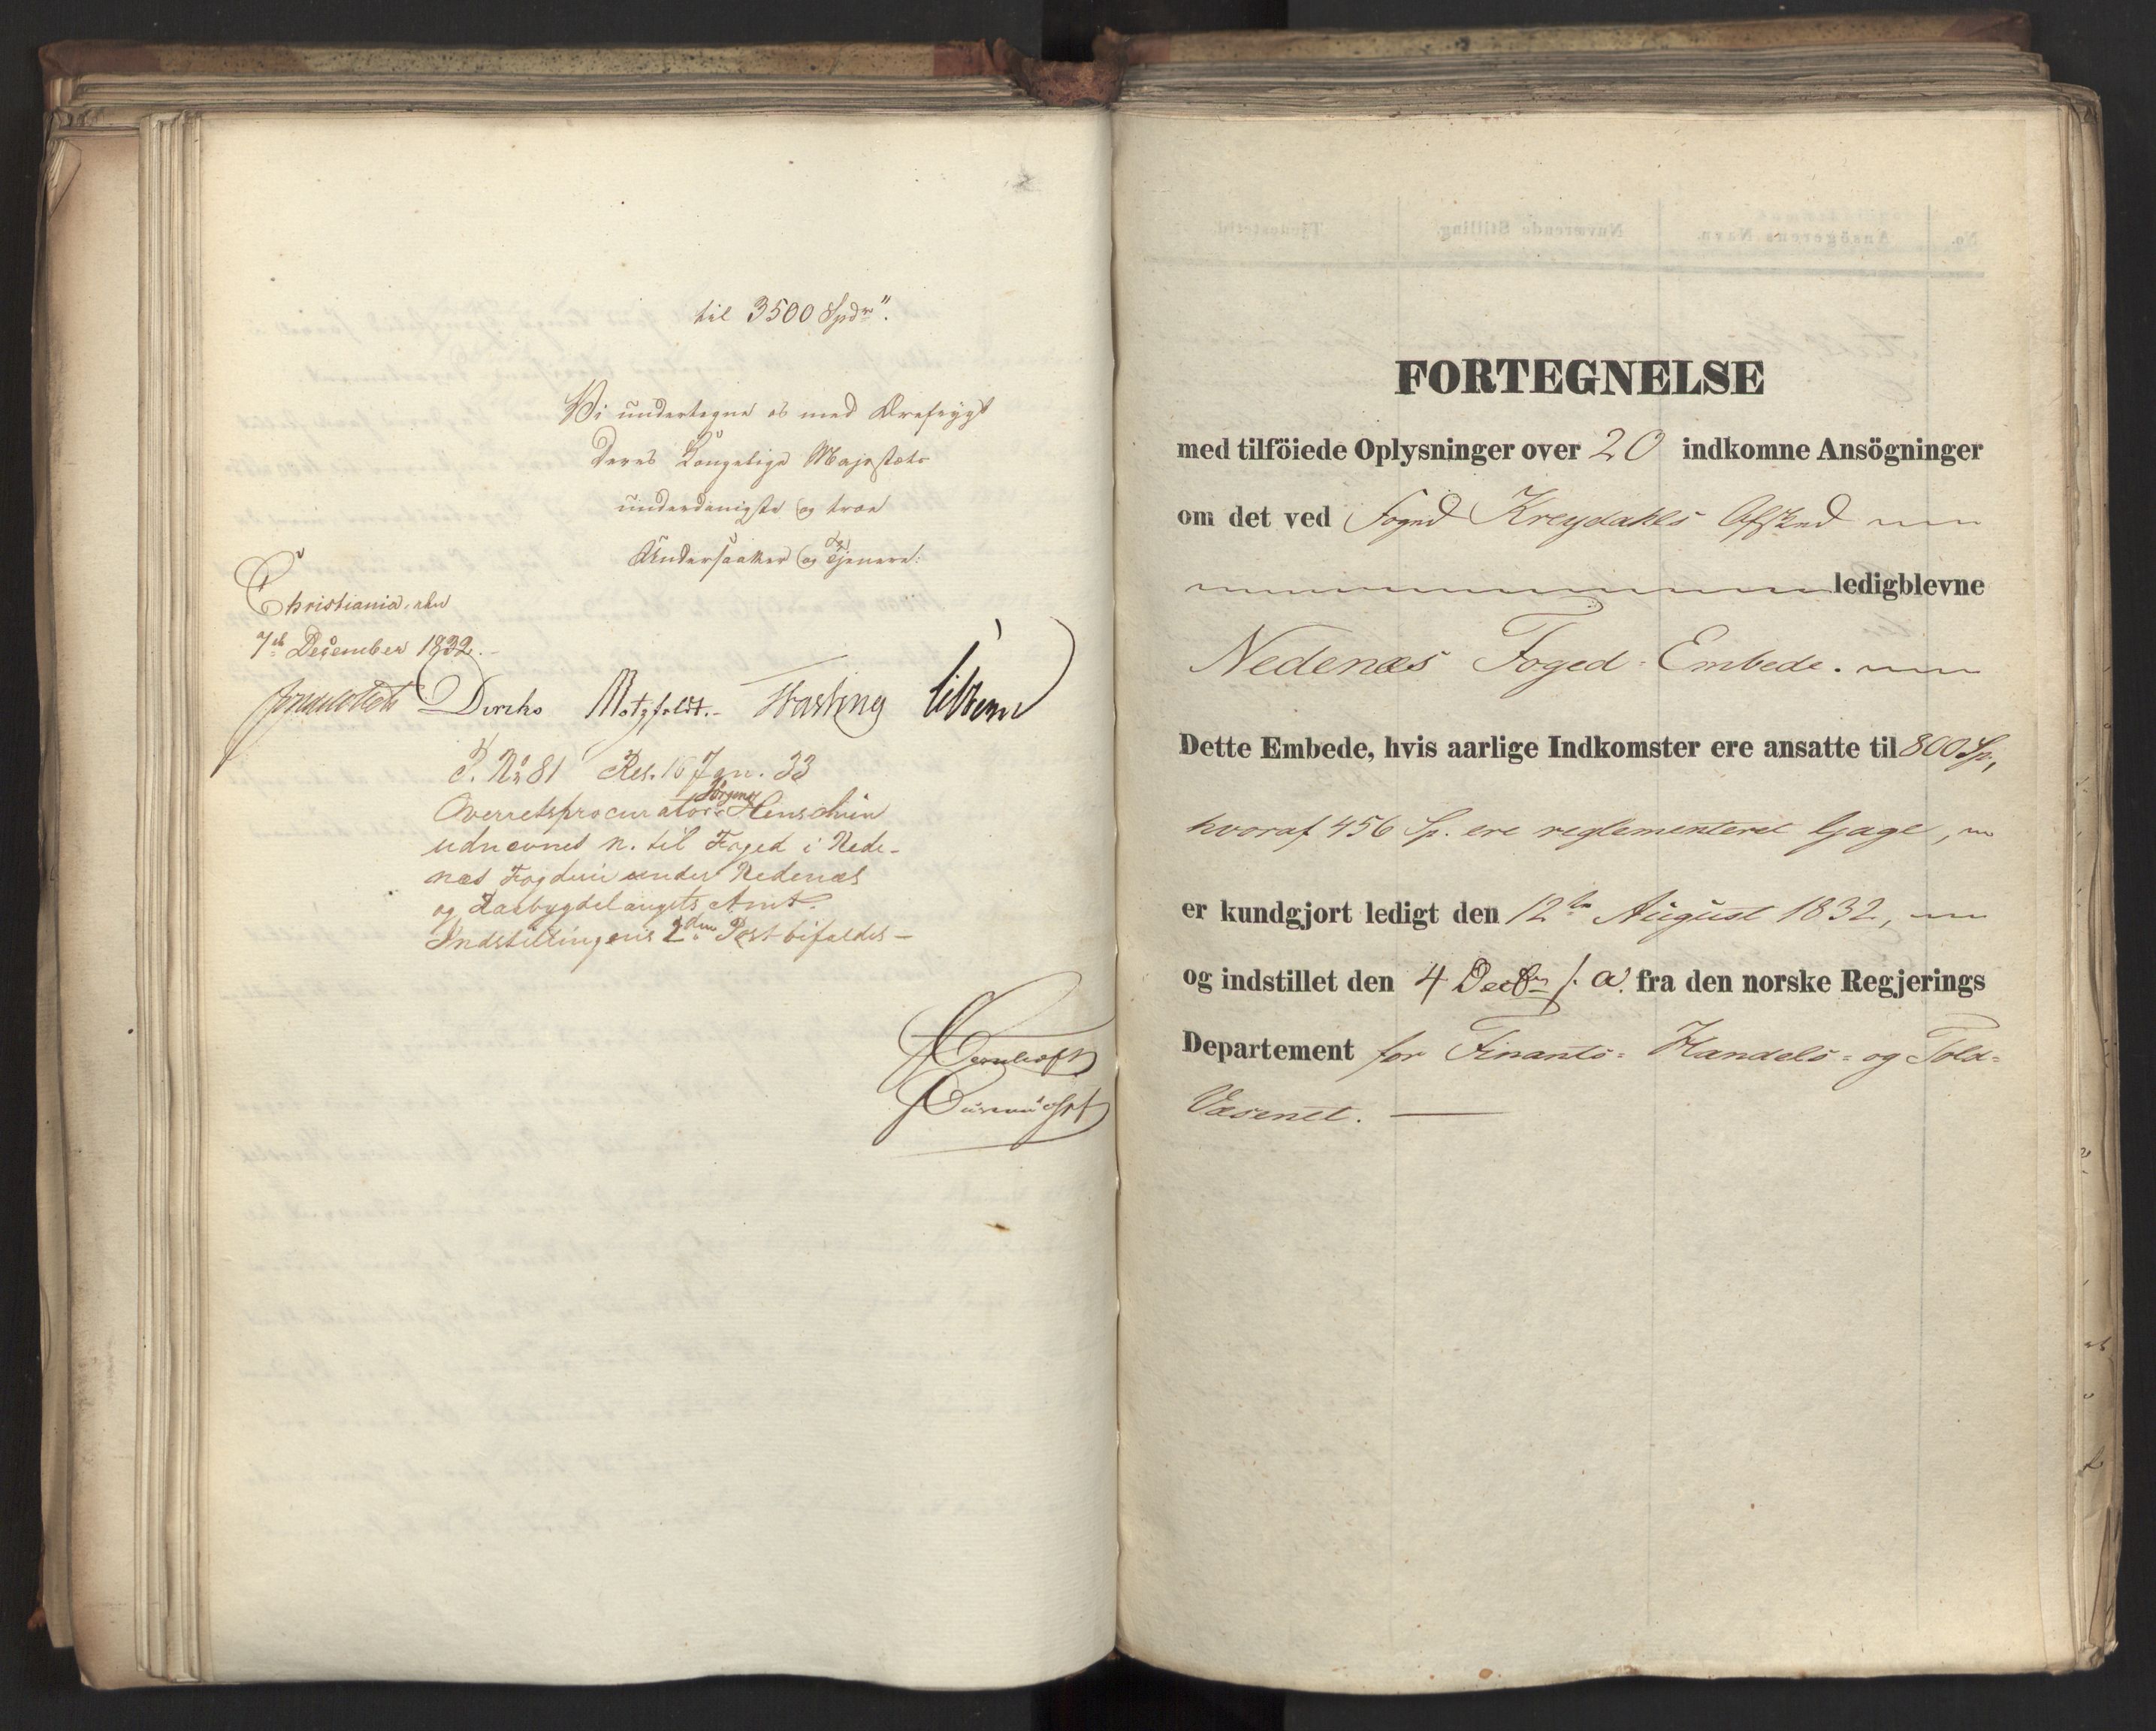 til 3500 Spdr".
Vi undertegne os med Ærefrygt
Deres Kongelige Majestæts
underdanigste og troe
Undersaatter og Tjenere:
Christiania, den
7de December 1832.
Diriks Motzfeldt. Fasting
P. No 81 Res. 16 Jan. 33
Overretsprocurator Jørgen Henschien
udnævnes n. til Foged i Nede-
næs Fogderie under Nedenæs
og Raabygdelaugets Amt.
Indstillingens 2den Post bifaldes –
FORTEGNELSE
med tilföiede Oplysninger over 20 indkomne Ansögninger
om det ved Foged Kreydahls Afsked
ledigblevne
Nedenæs Foged-Embede.
Dette Embede, hvis aarlige Indkomster ere ansatte til 800 Sp.,
hvoraf 456 Sp. ere reglementeret Gage,
er kundgjort ledigt den 12te August 1832,
og indstillet den 4 Decbr f. a. fra den norske Regjerings
Departement for Finants- Handels- og Told-
Væsenet.